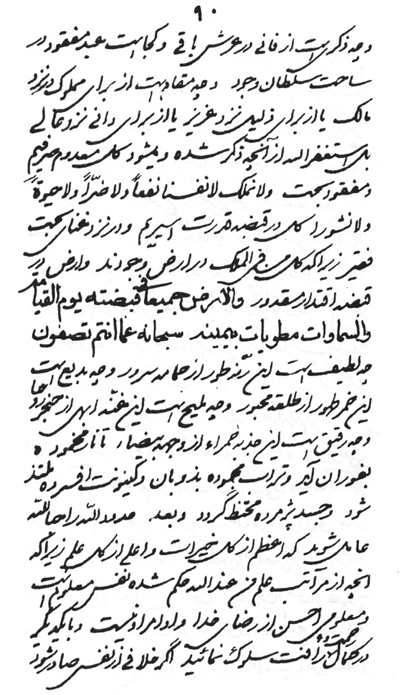 ٩٠
و چه ذکری است از فانی در عرش باقی و کجا است عبد مفقود در
ساحت سلطان وجود و چه مقام است از برای مملوک در نزد
مالک یا از برای ذلیل نزد عزیز یا از برای دانی نزد عالی
بل استغفر الله از آنچه ذکر شده و میشود کل معدوم صرفیم
و مفقود بحت ولا نملک لانفسنا نفعا ولا ضرّا ولا حیوة
ولا نشورا کل در قبضه قدرت اسیریم و در نزد غنای بحت
فقیر زیرا که کل من فی الملک در ارض وجودند و ارض در
قبضه اقتدار مقدور والارض جمیعا فی قبضته یوم القیامة
والسماوات مطویات بیمینه سبحانه عما انتم تصفون
چه لطیف است این رنّه طور از حمامه سرور و چه بدیع است
این خمر طهور از طلعة محبور و چه ملیح است این غنّه الهی از حنجر
و چه رقیق است این جذبه حمراء از وجهه بیضاء تا نار مخموده
بفوران آید و تراب مجموده بذوبان و کینونت افسرده ملتذ
شود و جسد پژمرده محتظ گردد و بعد حدود الله را حبا لله
عامل شوید که اعظم از کل خیرات و اعلی از کل علم زیرا که
آنچه از مراتب علم من عند الله حکم شده نفس معلوم است
و معلومی احسن از رضای خدا و اوامر او نیست و با یکدیگر
در کمال رأفت سلوک نمائید اگر خلافی از نفسی صادر شود